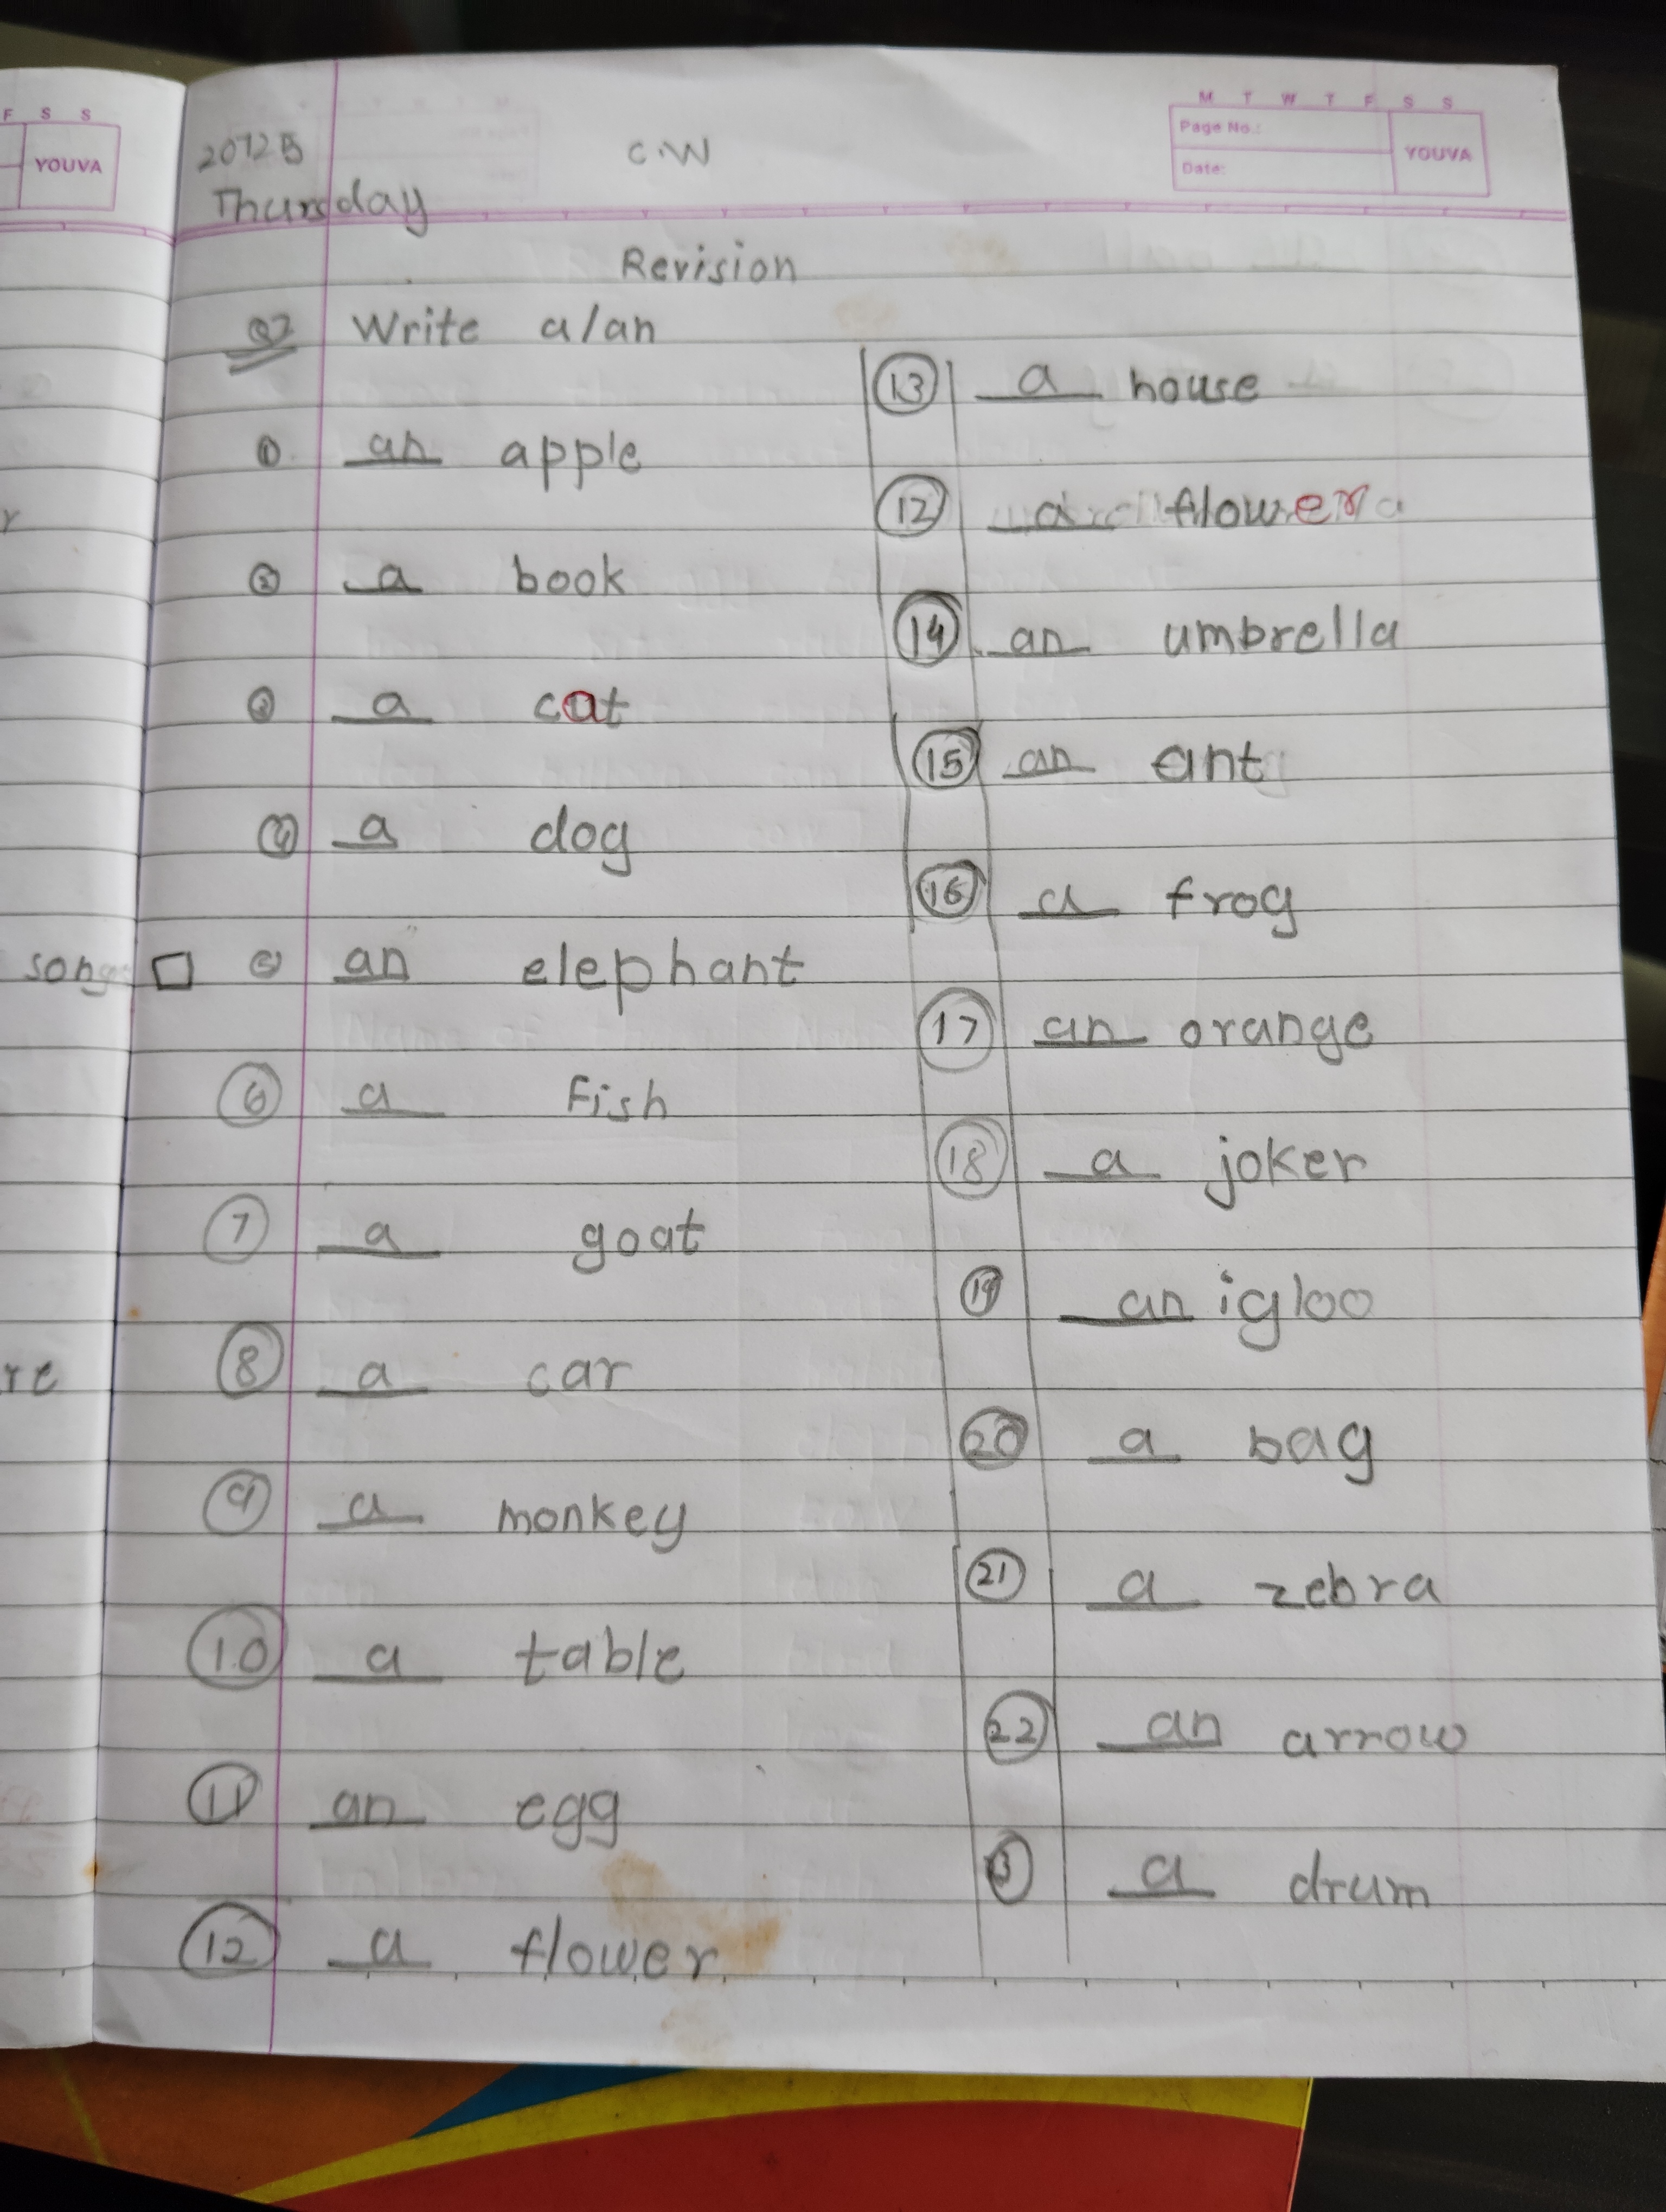 F S S
YOUVA
r
song
re
M T W T F S S
Page No.:
Date:
YOUVA
C.W
Thursday
Revision
Write a/an
① an apple
② a book
③ a cat
④ a dog
⑤ an elephant
⑥ a Fish
⑦ a goat
⑧ a car
⑨ a monkey
⑩ a table
⑪ an egg
⑫ a flower
⑬ a house
⑫ a flower
⑭ an umbrella
⑮ an ant
⑯ a frog
⑰ an orange
⑱ a joker
⑲ an igloo
⑳ a bag
㉑ a zebra
㉒ an arrow
a drum